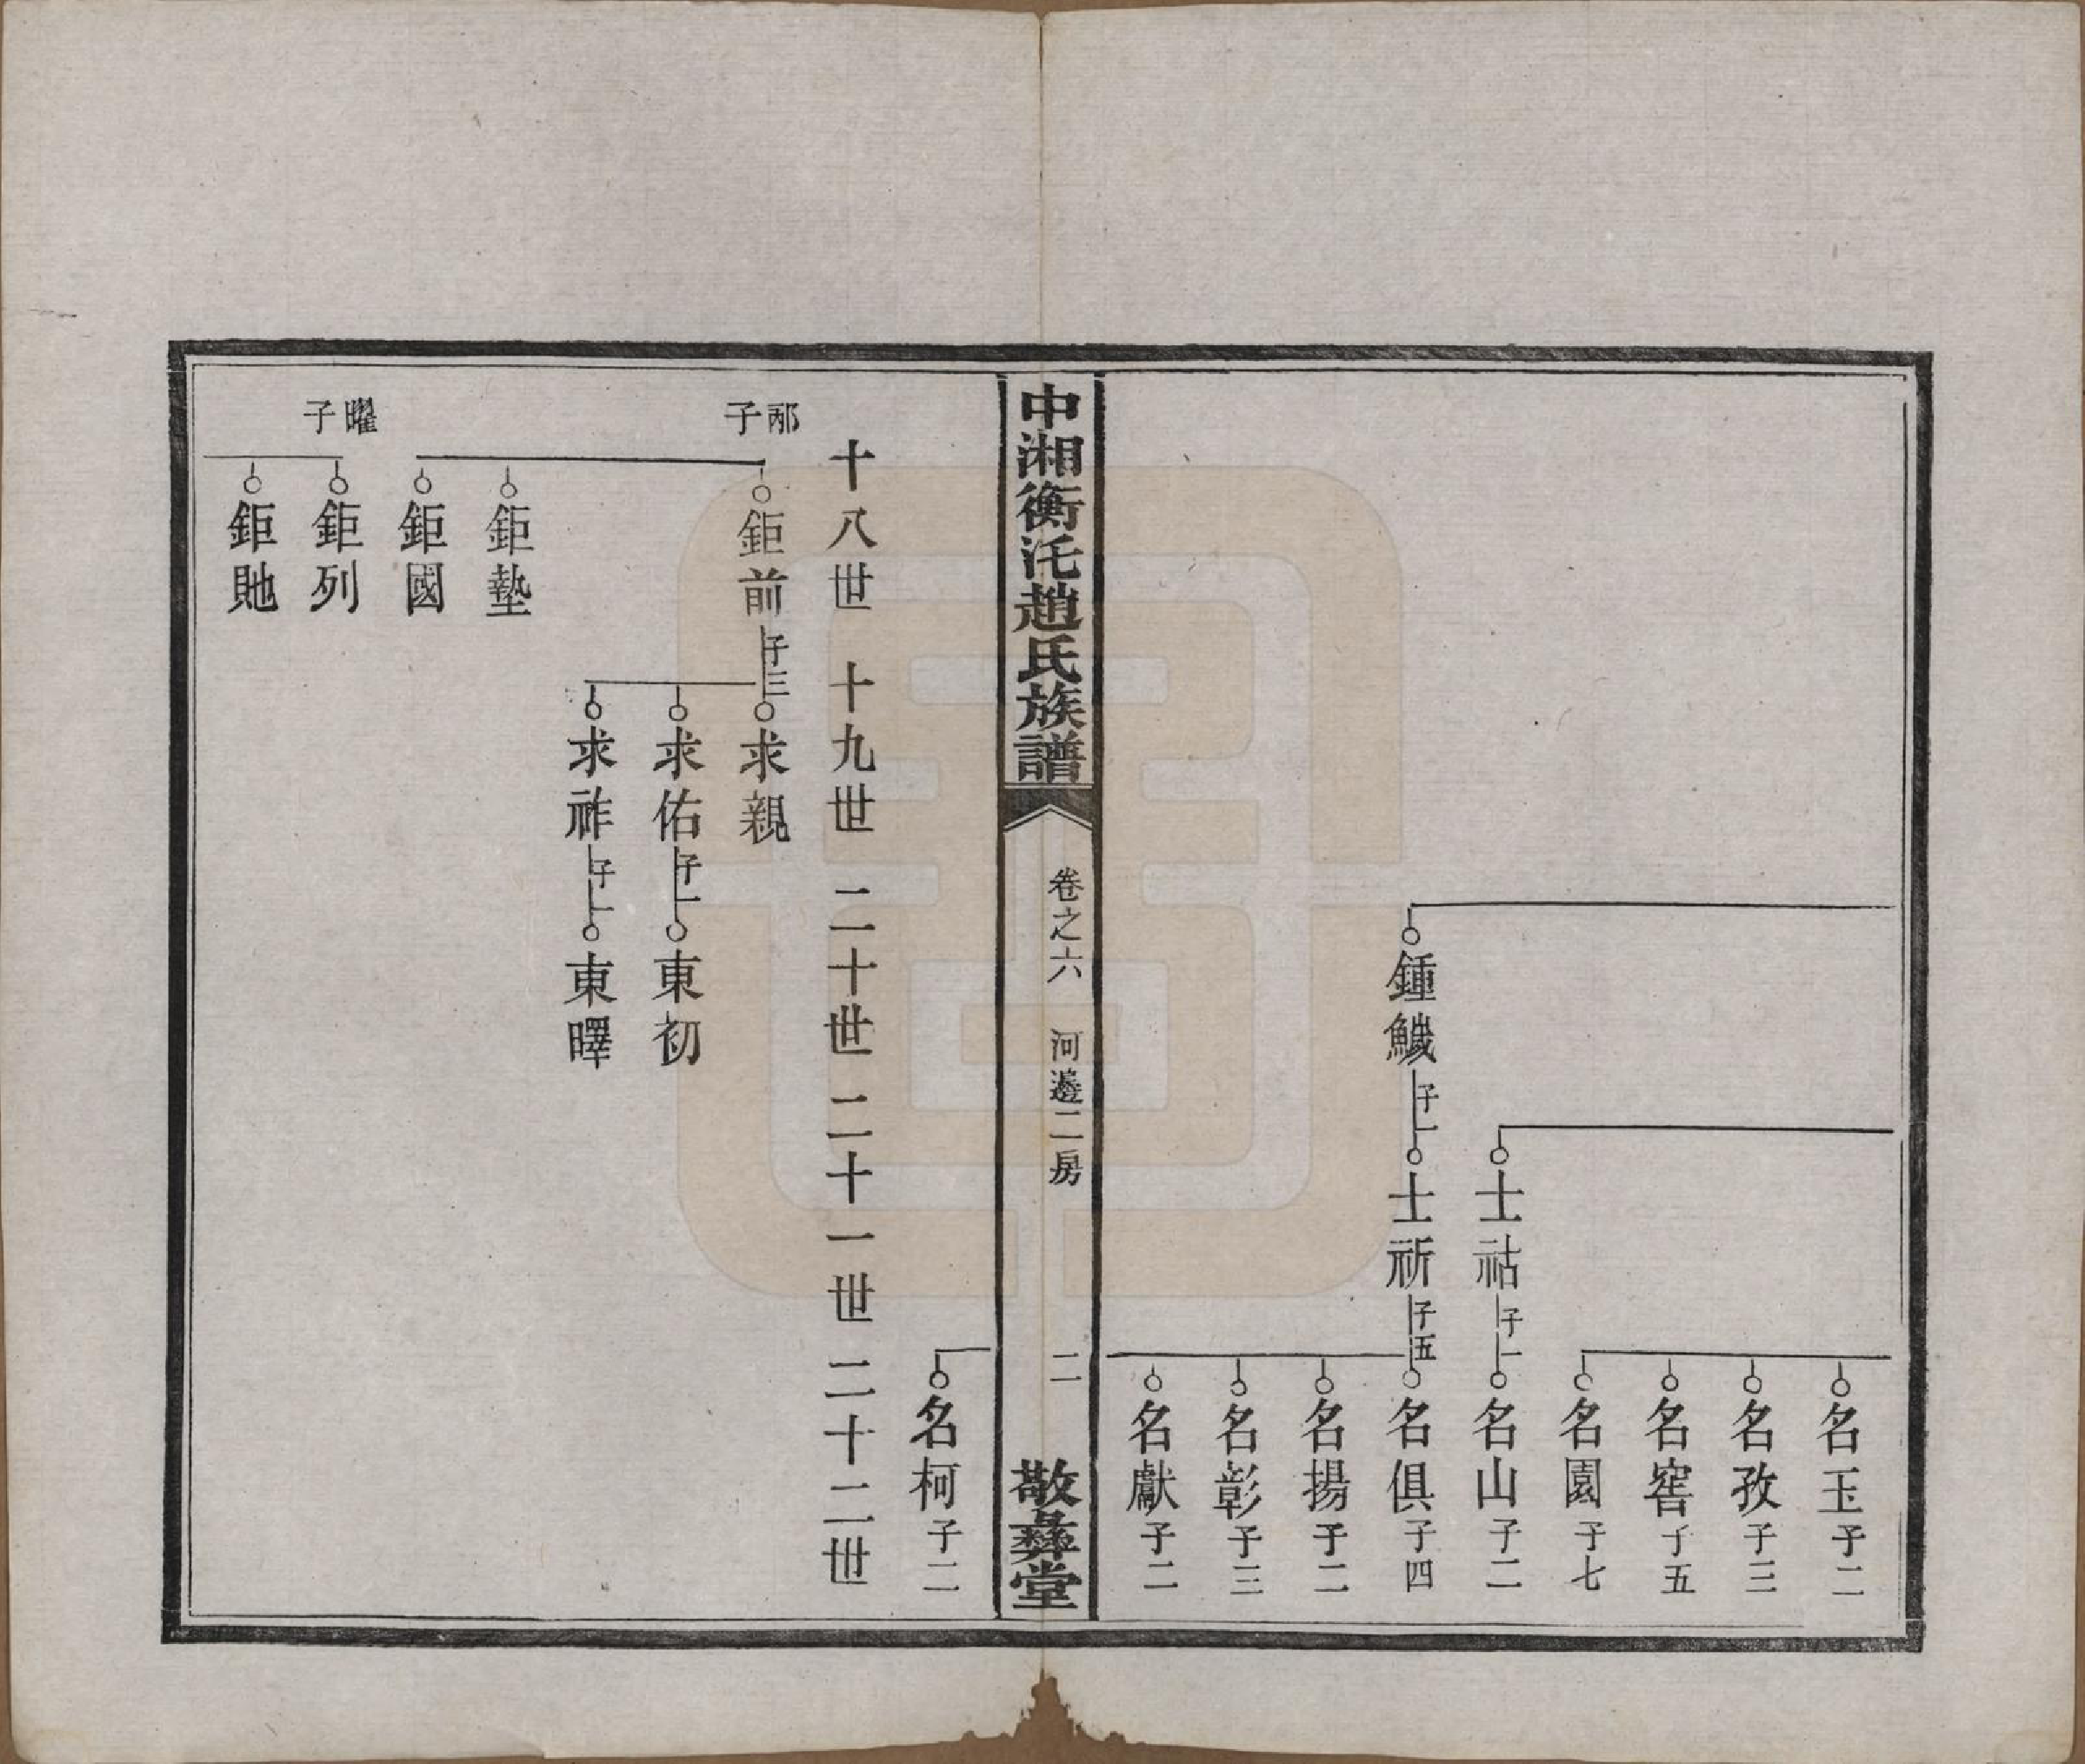 名玉子二
名孜子三
名窖子五
名園子七
士祜子一
名山子二
鍾鱴子一
士祈子五
名俱子四
名揚子二
名彰子三
名獻子二
中湘衡汑趙氏族譜
卷之六 河邊二房
二
敬彝堂
名柯子二
十八世 十九世 二十世 二十一世 二十二世
邴子
鉅前子三
求親
求佑子一
東初
求祚子一
東曎
鉅墊
鉅國
曜子
鉅列
鉅貤